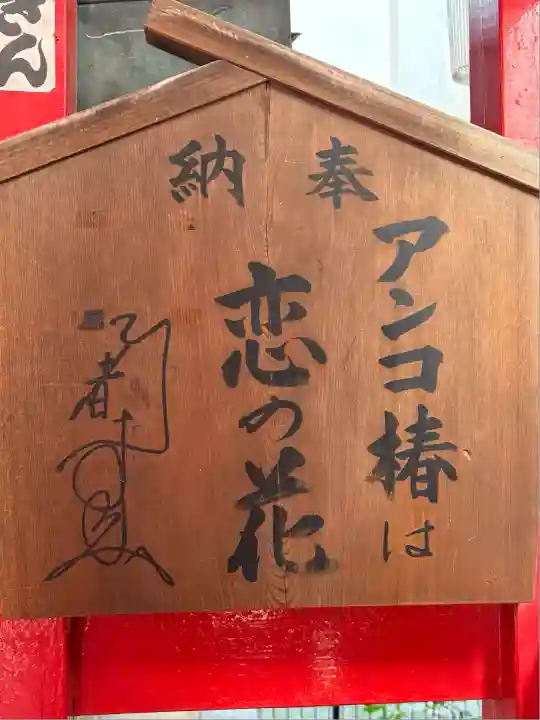 奉納
アンコ椿は
恋の花
きん